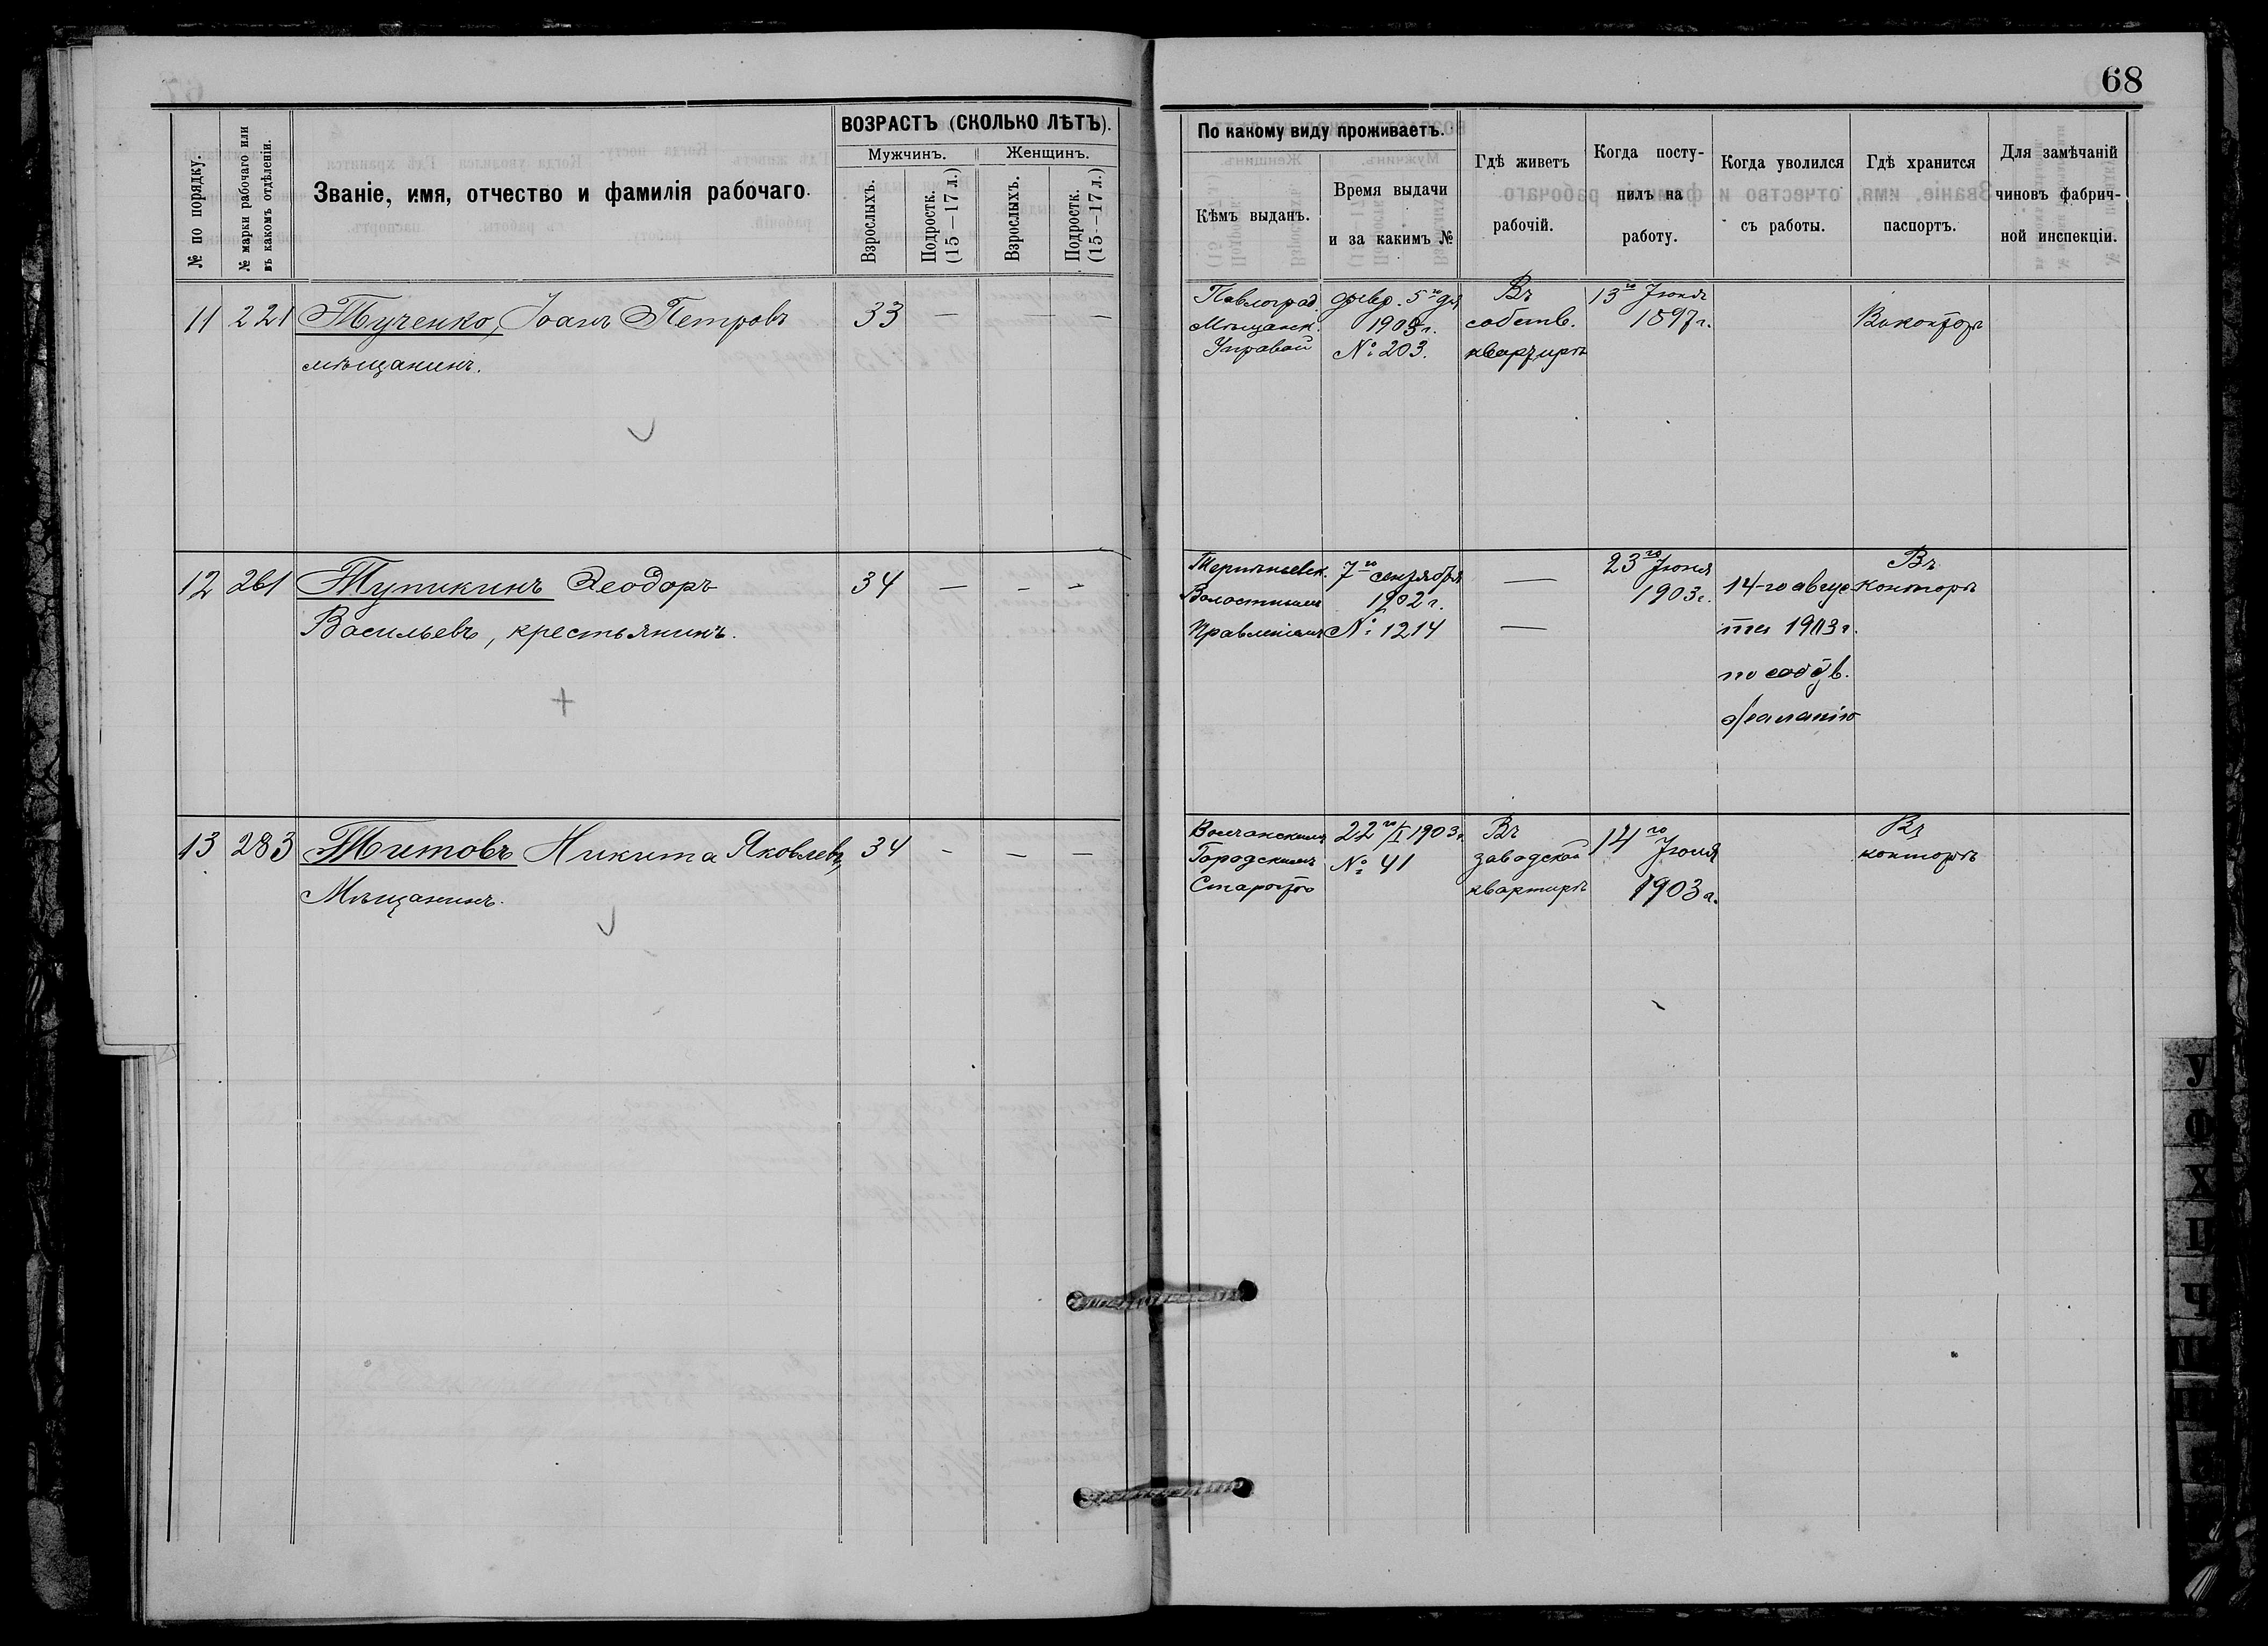 68
№ по порядку.
№ марки рабочаго или
въ какомъ отдѣленіи.
Званіе, имя, отчество и фамилія рабочаго.
ВОЗРАСТЪ (СКОЛЬКО ЛѢТЪ).
Мужчинъ.
Женщинъ.
Взрослыхъ.
Подростк.
(15—17 л.)
Взрослыхъ.
Подростк.
(15—17 л.)
По какому виду проживаетъ.
Кѣмъ выданъ.
Время выдачи
и за какимъ №
Гдѣ живетъ
рабочій.
Когда посту-
пилъ на
работу.
Когда уволился
съ работы.
Гдѣ хранится
паспортъ.
Для замѣчаній
чиновъ фабрич-
ной инспекціи.
11 221 Тученко, Іоанъ Петровъ 33 — — —
мѣщанинъ.
Павлоград.
Мѣщанск.
Управой
февр. 5го дня
1903 г.
№ 203.
Въ
собств.
квартирѣ
13го Іюня
1897 г.
Въ конторѣ
12 261 Тупикинъ Ѳеодоръ 34 — — —
Васильевъ, крестьянинъ.
Волостнымъ
Правленіемъ
7го сентября
1902 г.
№ 1214
—
—
23го Іюня
1903 г.
14-го авгус-
та 1903 г.
по собств.
желанію
Въ
конторѣ
13 283 Титовъ Никита Яковлевъ, 34 — — —
Мѣщанинъ.
Волчанскимъ
Городскимъ
Старостою
22го/I 1903 г.
№ 41
Въ
заводской
квартирѣ
14го
Іюля
1903 г.
Въ
конторѣ
У
Ф
Х
Ц
Ч